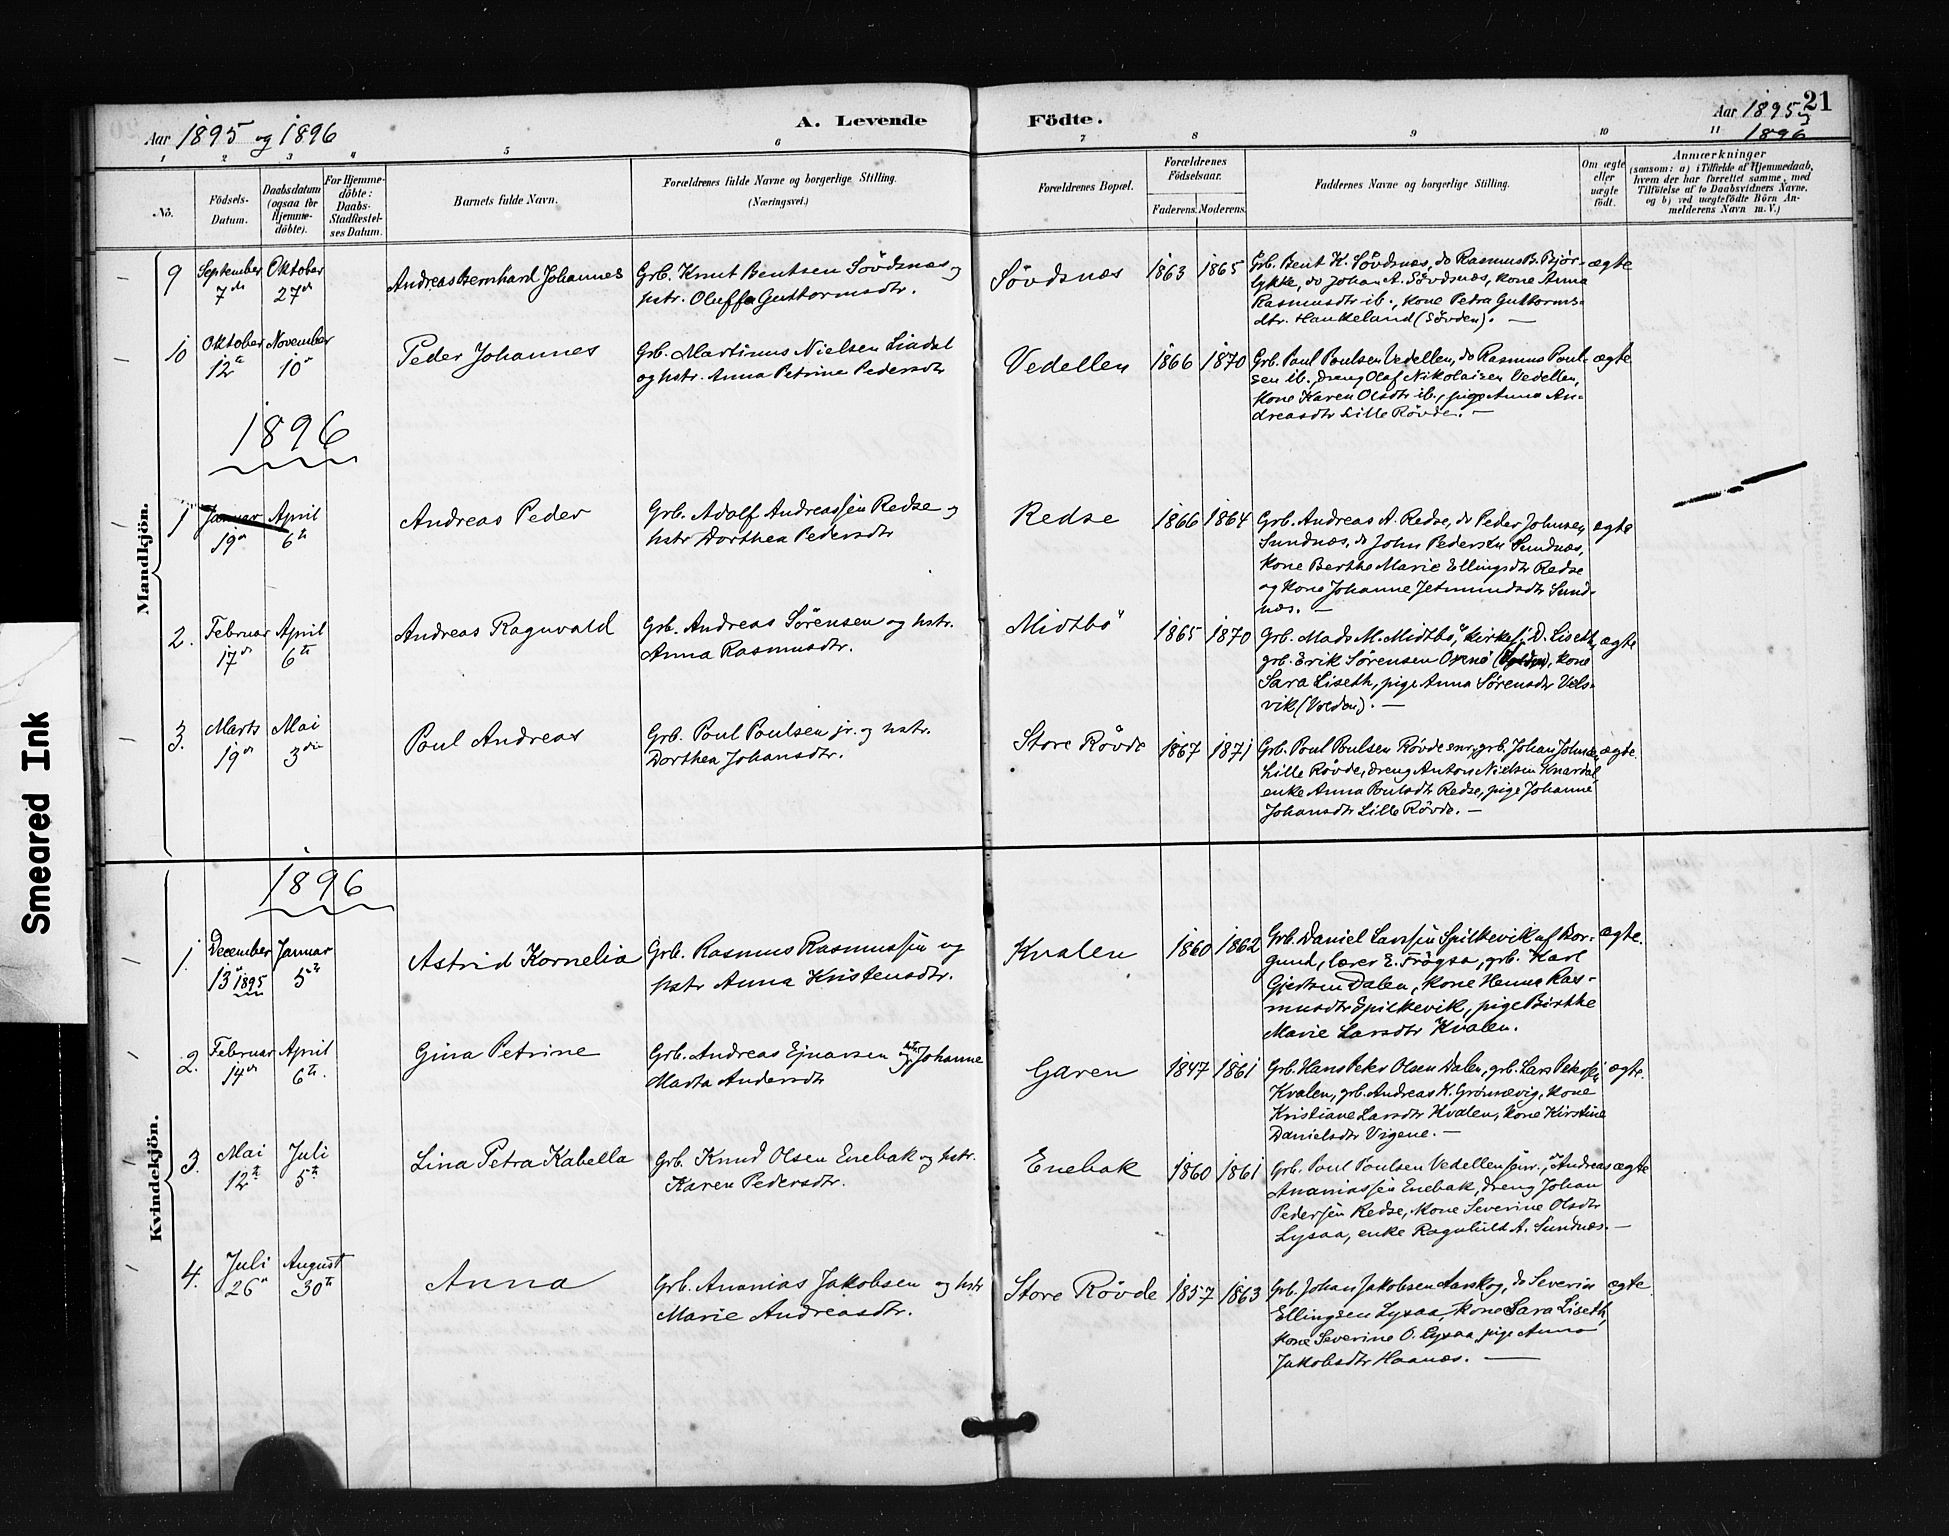 21
Aar 1895 og 1896
A. Levende Födte.
Aar 1895 og
1896
1 2 3 4 5 6 7 8 9 10 11
No.
Födsels-
Datum.
Daabsdatum
(ogsaa for
Hjemme-
döbte).
For Hjemme-
döbte:
Daabs-
Stadfæstel-
ses Datum.
Barnets fulde Navn.
Forældrenes fulde Navne og borgerlige Stilling.
(Næringsvei.)
Forældrenes Bopæl.
Forældrenes
Födselsaar.
Faderens. Moderens.
Faddernes Navne og borgerlige Stilling.
Om ægte
eller
uægte
födt.
Anmærkninger
(saasom: a) i Tilfælde af Hjemmedaab,
hvem der har forrettet samme, med
Tilföielse af to Daabsvidners Navne,
og b) ved uægtefödte Börn An-
melderens Navn m. V.)
Mandkjön.
9 September 7de Oktober 27de Andreas Bernhard Johannes
Grb. Knut Bentsen Sövdsnæs og
hstr. Oluffa Guttormsdtr.
Sövdsnæs 1863 1865
Grb. Bent K. Sövdsnæs, do Rasmus B. Björ-
lykke, do Johan A. Sövdsnæs, kone Anna
Rasmusdtr ib., kone Pedra Guttorms-
dtr. Haukeland (Sövden). —
ægte
10 Oktober 12te November 10de Peder Johannes
Grb. Martinus Nielsen Liadal
og hstr. Anna Petrine Pedersdtr
Vedellen 1866 1870
Grb. Paul Poulsen Vedellen, do Rasmus Poul-
sen ib., dreng Olaf Nikolaisen Vedellen,
kone Karen Olsdtr ib., pige Anna An-
dreasdtr Lille Rövde. —
ægte
1896
1 Januar 19de April 6te Andreas Peder
Grb. Adolf Andreassen Redse og
hstr Dorthea Pedersdtr
Redse 1866 1864
Grb. Andreas A. Redse, do Peder Johnsen
Sundnæs, do John Pedersen Sundnæs,
kone Berthe Marie Ellingsdtr Redse
og kone Johanne Jetmundsdtr Sund-
næs. —
ægte
2. Februar 17de April 6te Andreas Ragnvald
Grb. Andreas Sörensen og hstr.
Anna Rasmusdtr.
Midtbö 1865 1870
Grb. Mads M. Midtbö, kirkes. D. Liseth,
grb. Erik Sörensen kone
Sara Liseth, pige Anna Sörensdtr Vels-
vik (Volden). —
ægte
3. Marts 19de Mai 3die Poul Andreas
Grb. Poul Poulsen jr. og hstr.
Dorthea Johansdtr.
Store Rövde 1867 1871
Grb. Poul Poulsen Rövde senr, grb. Johan Johnsen
Lille Rövde, dreng Anton Nielsen Knardal,
enke Anna Poulsdtr Redse, pige Johanne
Johansdtr Lille Rövde. —
ægte.
Kvindekjön.
1896
1. December 13de 1895 Januar 5te Astrid Kornelia
Grb. Rasmus Rasmussen og
hstr Anna Kristensdtr.
Kvalen 1860 1862
Grb. Daniel Larssen Spilkevik af Bor-
gund, lærer E. Frögsa, grb. Karl
Gjertsen Dalen, kone Hanna Ras-
musdtr Spilkevik, pige Berthe
Marie Larsdtr Kvalen.
ægte.
2. Februar 14de April 6te. Gina Petrine
Grb. Andreas Ejnarsen og hstr. Johanne
Marta Andersdtr
Garen 1847 1861
Grb. Hans Peter Olsen Dalen, grb. Lars Petersen
Kvalen, grb. Andreas K. Grönnevig, kone
Kristiane Larsdtr Kvalen, kone Kirstine
Danielsdtr Vigene. —
ægte.
3. Mai 12te Juli 5te Lina Petra Kabella
Grb. Knud Olsen Enebak og hstr.
Karen Pedersdtr.
Enebak 1860 1861
Grb. Poul Poulsen Vedellen senr., do Andreas
Ananiassen Enebak, dreng Johan
Pedersen Redse, kone Severine Olsdtr
Lysaa, enke Ragnhild A. Sundnæs. —
ægte
4. Juli 26de August 30te Anna
Grb. Ananias Jakobsen og hstr
Marie Andreasdtr.
Store Rövde 1857 1863
Grb. Johan Jakobsen Aarskog, do Severin
Ellingsen Lysaa, kone Sara Liseth,
kone Severine O. Lysaa, pige Anna
Jakobsdtr Haanæs. —
ægte
Smeared Ink